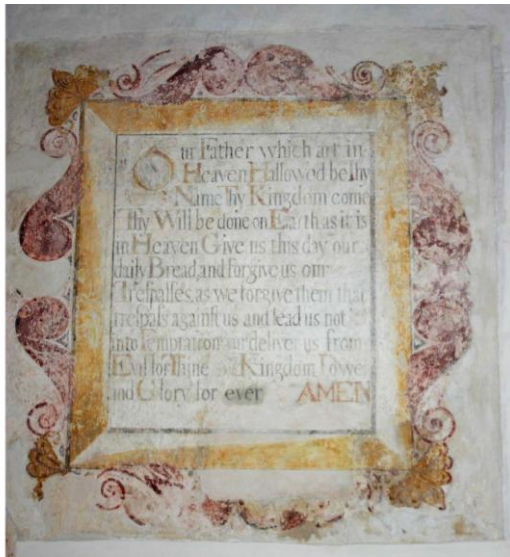 Our Father which art in
Heaven Hallowed be thy
Name Thy Kingdom come
Thy Will be done on Earth as it is
in Heaven Give us this day our
daily Bread, and forgive us our
Trespasses, as we forgive them that
trespass against us and lead us not
into Temptation but deliver us from
Evil for Thine Kingdom Power
and Glory for ever AMEN